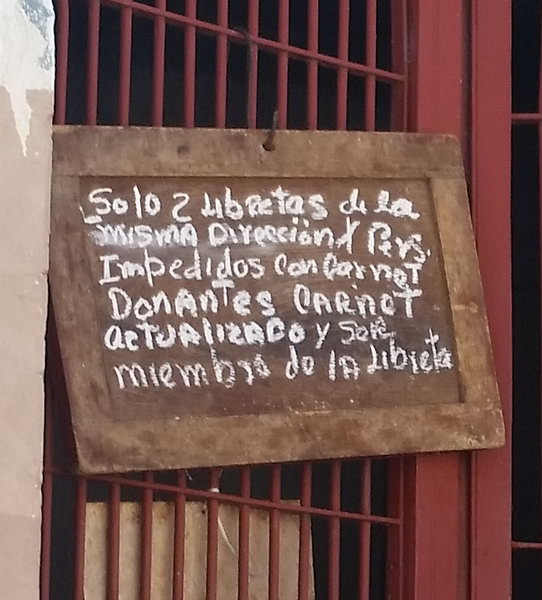 Solo 2 Libretas de la
MISMA Dirección Y Pers.
Impedidos Con Carnet
DONANTES CARNET
ACTUALIZADO Y Ser
miembro de la Libreta